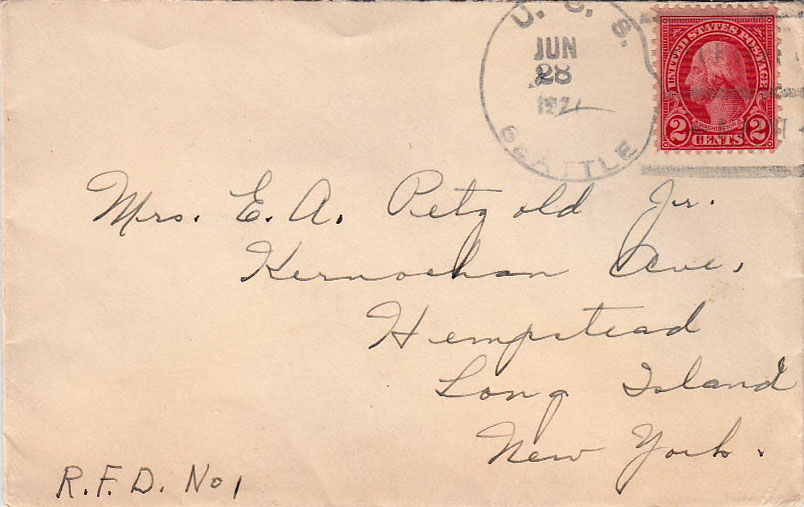 U. S. S.
JUN
28
1927
SEATTLE
UNITED STATES POSTAGE
WASHINGTON
2 CENTS 2
Mrs. E. A. Petzold Jr.
Kernochan Ave,
Hempstead
Long Island
New York.
R.F.D. No 1